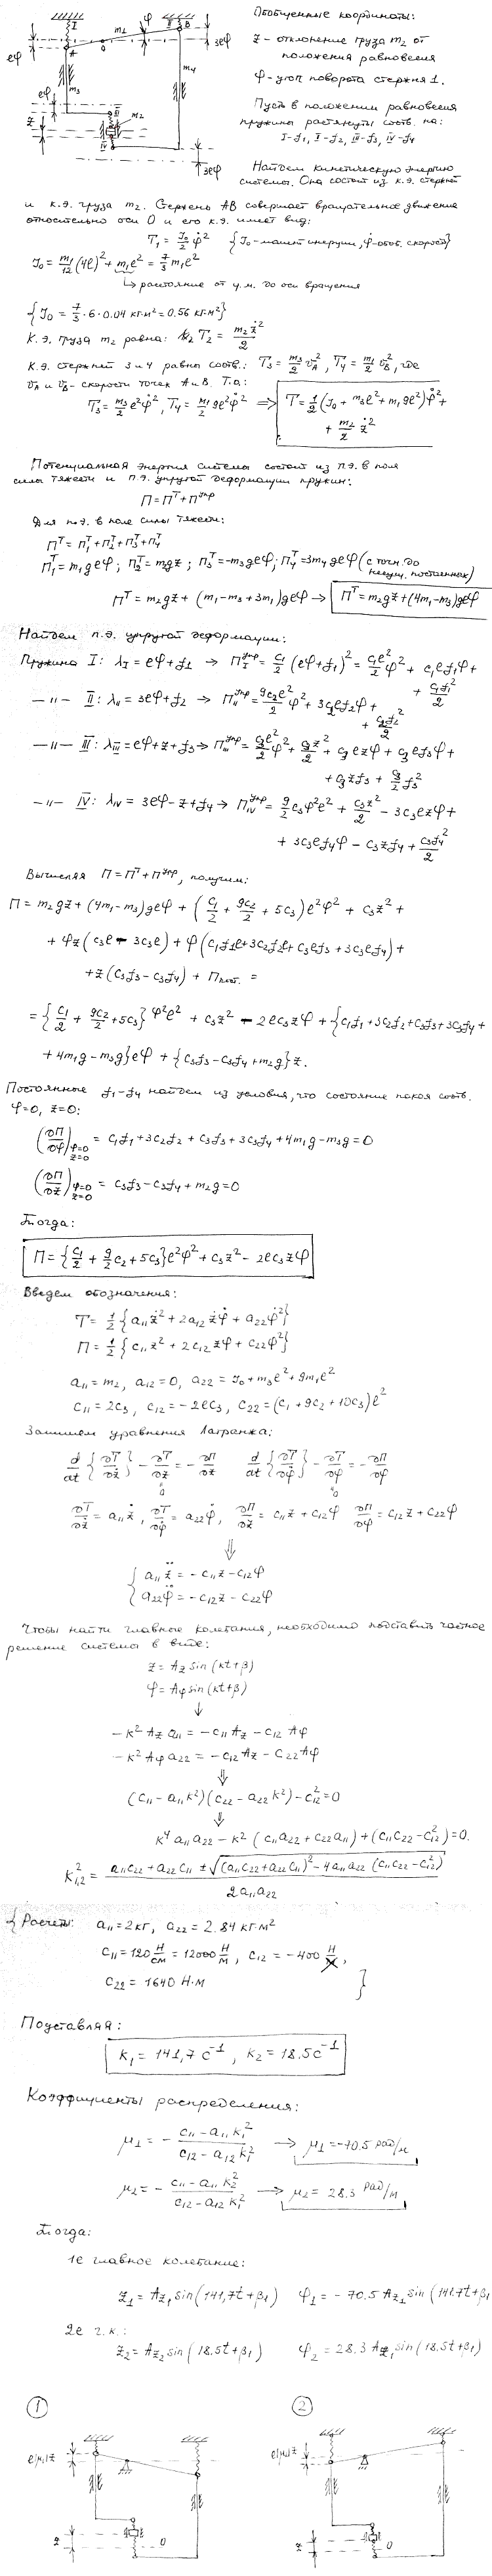 Обобщенные координаты:
z - отклонение груза m₂ от
положения равновесия
φ - угол поворота стержня 1.
Пусть в положении равновесия
пружины растянуты соотв. на:
I-f₁, II-f₂, III-f₃, IV-f₄
Найдем кинетическую энергию
системы. Она состоит из к.э. стержней
и к.э. груза m₂. Стержень AB совершает вращательное движение
относительно оси O и его к.э. имеет вид:
T₁ = J₀/2 φ̇² {J₀-момент инерции, φ̇-обоб. скорость}
J₀ = m₁/12 (4ℓ)² + m₁ℓ² = 7/3 m₁ℓ²
↳ расстояние от ц.м. до оси вращения
{J₀ = 7/3 · 6 · 0.04 кг·м² = 0.56 кг·м²}
К.э. груза m₂ равна: T₂ = m₂ż²/2
К.э. стержней 3 и 4 равны соотв.: T₃ = m₃/2 v_A², T₄ = m₁/2 v_B², где
v_A и v_B - скорости точек A и B. Т.о.:
T₃ = m₃/2 ℓ²φ̇², T₄ = m₁/2 9ℓ²φ̇² ⇒ T = 1/2 (J₀ + m₃ℓ² + m₁9ℓ²)φ̇² +
+ m₂/2 ż²
Потенциальная энергия системы состоит из п.э. в поле
силы тяжести и п.э. упругой деформации пружин:
П = Пᵀ + Пʸᵖᵖ
Для п.э. в поле силы тяжести:
Пᵀ = П₁ᵀ + П₂ᵀ + П₃ᵀ + П₄ᵀ
П₁ᵀ = m₁gℓφ; П₂ᵀ = m₂gz; П₃ᵀ = -m₃gℓφ; П₄ᵀ = 3m₄gℓφ (с точн. до
несущ. постоянных)
Пᵀ = m₂gz + (m₁ - m₃ + 3m₁)gℓφ → Пᵀ = m₂gz + (4m₁ - m₃)gℓφ
Найдем п.э. упругой деформации:
Пружина I: λ_I = ℓφ + f₁ → П_I^упр = c₁/2 (ℓφ + f₁)² = c₁ℓ²/2 φ² + c₁ℓf₁φ +
+ c₁f₁²/2
-"- II: λ_II = 3ℓφ + f₂ → П_II^упр = 9c₂ℓ²/2 φ² + 3c₂ℓf₂φ +
+ c₂f₂²/2
-"- III: λ_III = ℓφ + z + f₃ → П_III^упр = c₃ℓ²/2 φ² + c₃z²/2 + c₃ℓzφ + c₃ℓf₃φ +
+ c₃zf₃ + c₃/2 f₃²
-"- IV: λ_IV = 3ℓφ - z + f₄ → П_IV^упр = 9/2 c₃φ²ℓ² + c₃z²/2 - 3c₃ℓzφ +
+ 3c₃ℓf₄φ - c₃zf₄ + c₃f₄²/2
Вычисляя П = Пᵀ + П^упр, получим:
П = m₂gz + (4m₁ - m₃)gℓφ + (c₁/2 + 9c₂/2 + 5c₃)ℓ²φ² + c₃z² +
+ φz(c₃ℓ - 3c₃ℓ) + φ(c₁f₁ℓ + 3c₂f₂ℓ + c₃ℓf₃ + 3c₃ℓf₄) +
+ z(c₃f₃ - c₃f₄) + П_пост. =
= {c₁/2 + 9c₂/2 + 5c₃}φ²ℓ² + c₃z² - 2ℓc₃zφ + {c₁f₁ + 3c₂f₂ + c₃f₃ + 3c₃f₄ +
+ 4m₁g - m₃g}ℓφ + {c₃f₃ - c₃f₄ + m₂g}z.
Постоянные f₁-f₄ найдем из условия, что состояние покоя соотв.
φ=0, z=0:
(∂П/∂φ)_φ=0 z=0 = c₁f₁ + 3c₂f₂ + c₃f₃ + 3c₃f₄ + 4m₁g - m₃g = 0
(∂П/∂z)_φ=0 z=0 = c₃f₃ - c₃f₄ + m₂g = 0
Тогда:
П = {c₁/2 + 9/2 c₂ + 5c₃}ℓ²φ² + c₃z² - 2ℓc₃zφ
Введем обозначения:
T = 1/2 {a₁₁ż² + 2a₁₂żφ̇ + a₂₂φ̇²}
П = 1/2 {c₁₁z² + 2c₁₂zφ + c₂₂φ²}
a₁₁ = m₂, a₁₂ = 0, a₂₂ = J₀ + m₃ℓ² + 9m₁ℓ²
c₁₁ = 2c₃, c₁₂ = -2ℓc₃, c₂₂ = (c₁ + 9c₂ + 10c₃)ℓ²
Запишем уравнения Лагранжа:
d/dt {∂T/∂ż} - ∂T/∂z = -∂П/∂z d/dt {∂T/∂φ̇} - ∂T/∂φ = -∂П/∂φ
0 0
∂T/∂ż = a₁₁ż, ∂T/∂φ̇ = a₂₂φ̇, ∂П/∂z = c₁₁z + c₁₂φ ∂П/∂φ = c₁₂z + c₂₂φ
⇓
{ a₁₁z̈ = -c₁₁z - c₁₂φ
a₂₂φ̈ = -c₁₂z - c₂₂φ
Чтобы найти главные колебания, необходимо подставить частное
решение системы в виде:
z = A_z sin(kt+β)
φ = A_φ sin(kt+β)
↓
-k² A_z a₁₁ = -c₁₁A_z - c₁₂A_φ
-k² A_φ a₂₂ = -c₁₂A_z - c₂₂A_φ
⇓
(c₁₁ - a₁₁k²)(c₂₂ - a₂₂k²) - c₁₂² = 0
⇓
k⁴a₁₁a₂₂ - k²(c₁₁a₂₂ + c₂₂a₁₁) + (c₁₁c₂₂ - c₁₂²) = 0.
k²₁,₂ = (a₁₁c₂₂ + a₂₂c₁₁ ± √((a₁₁c₂₂ + a₂₂c₁₁)² - 4a₁₁a₂₂(c₁₁c₂₂ - c₁₂²))) / 2a₁₁a₂₂
{Расчеты: a₁₁ = 2кг, a₂₂ = 2.84 кг·м²
c₁₁ = 120 Н/см = 12000 Н/м, c₁₂ = -400 Н,
c₂₂ = 1640 Н·м }
Подставляя:
k₁ = 141,7 с⁻¹, k₂ = 18.5 с⁻¹
Коэффициенты распределения:
μ₁ = - (c₁₁ - a₁₁k₁²)/(c₁₂ - a₁₂k₁²) → μ₁ = -70.5 рад/м
μ₂ = - (c₁₁ - a₁₁k₂²)/(c₁₂ - a₁₂k₁²) → μ₂ = 28.3 рад/м
Тогда:
1е главное колебание:
z₁ = A_z₁ sin(141,7t+β₁) φ₁ = -70.5 A_z₁ sin(141.7t+β₁
2е г.к.:
z₂ = A_z₂ sin(18.5t+β₁) φ₂ = 28.3 A_z₁ sin(18.5t+β₁)
1 2
ℓ|μ₁|z ℓ|μ₂|z
z 0 z 0